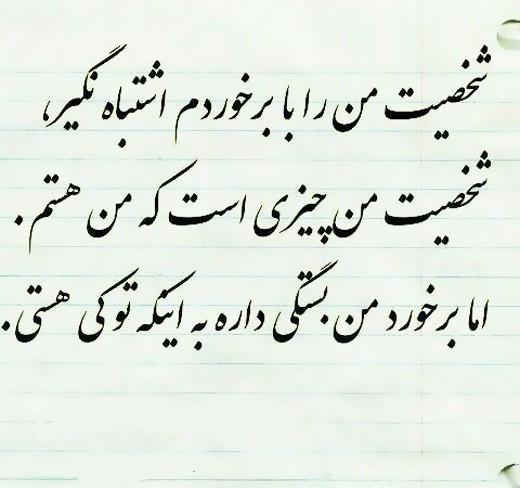 شخصیت من را با برخوردم اشتباه نگیر،
شخصیت من چیزی است که من هستم .
اما برخورد من بستگی داره به اینکه تو کی هستی .